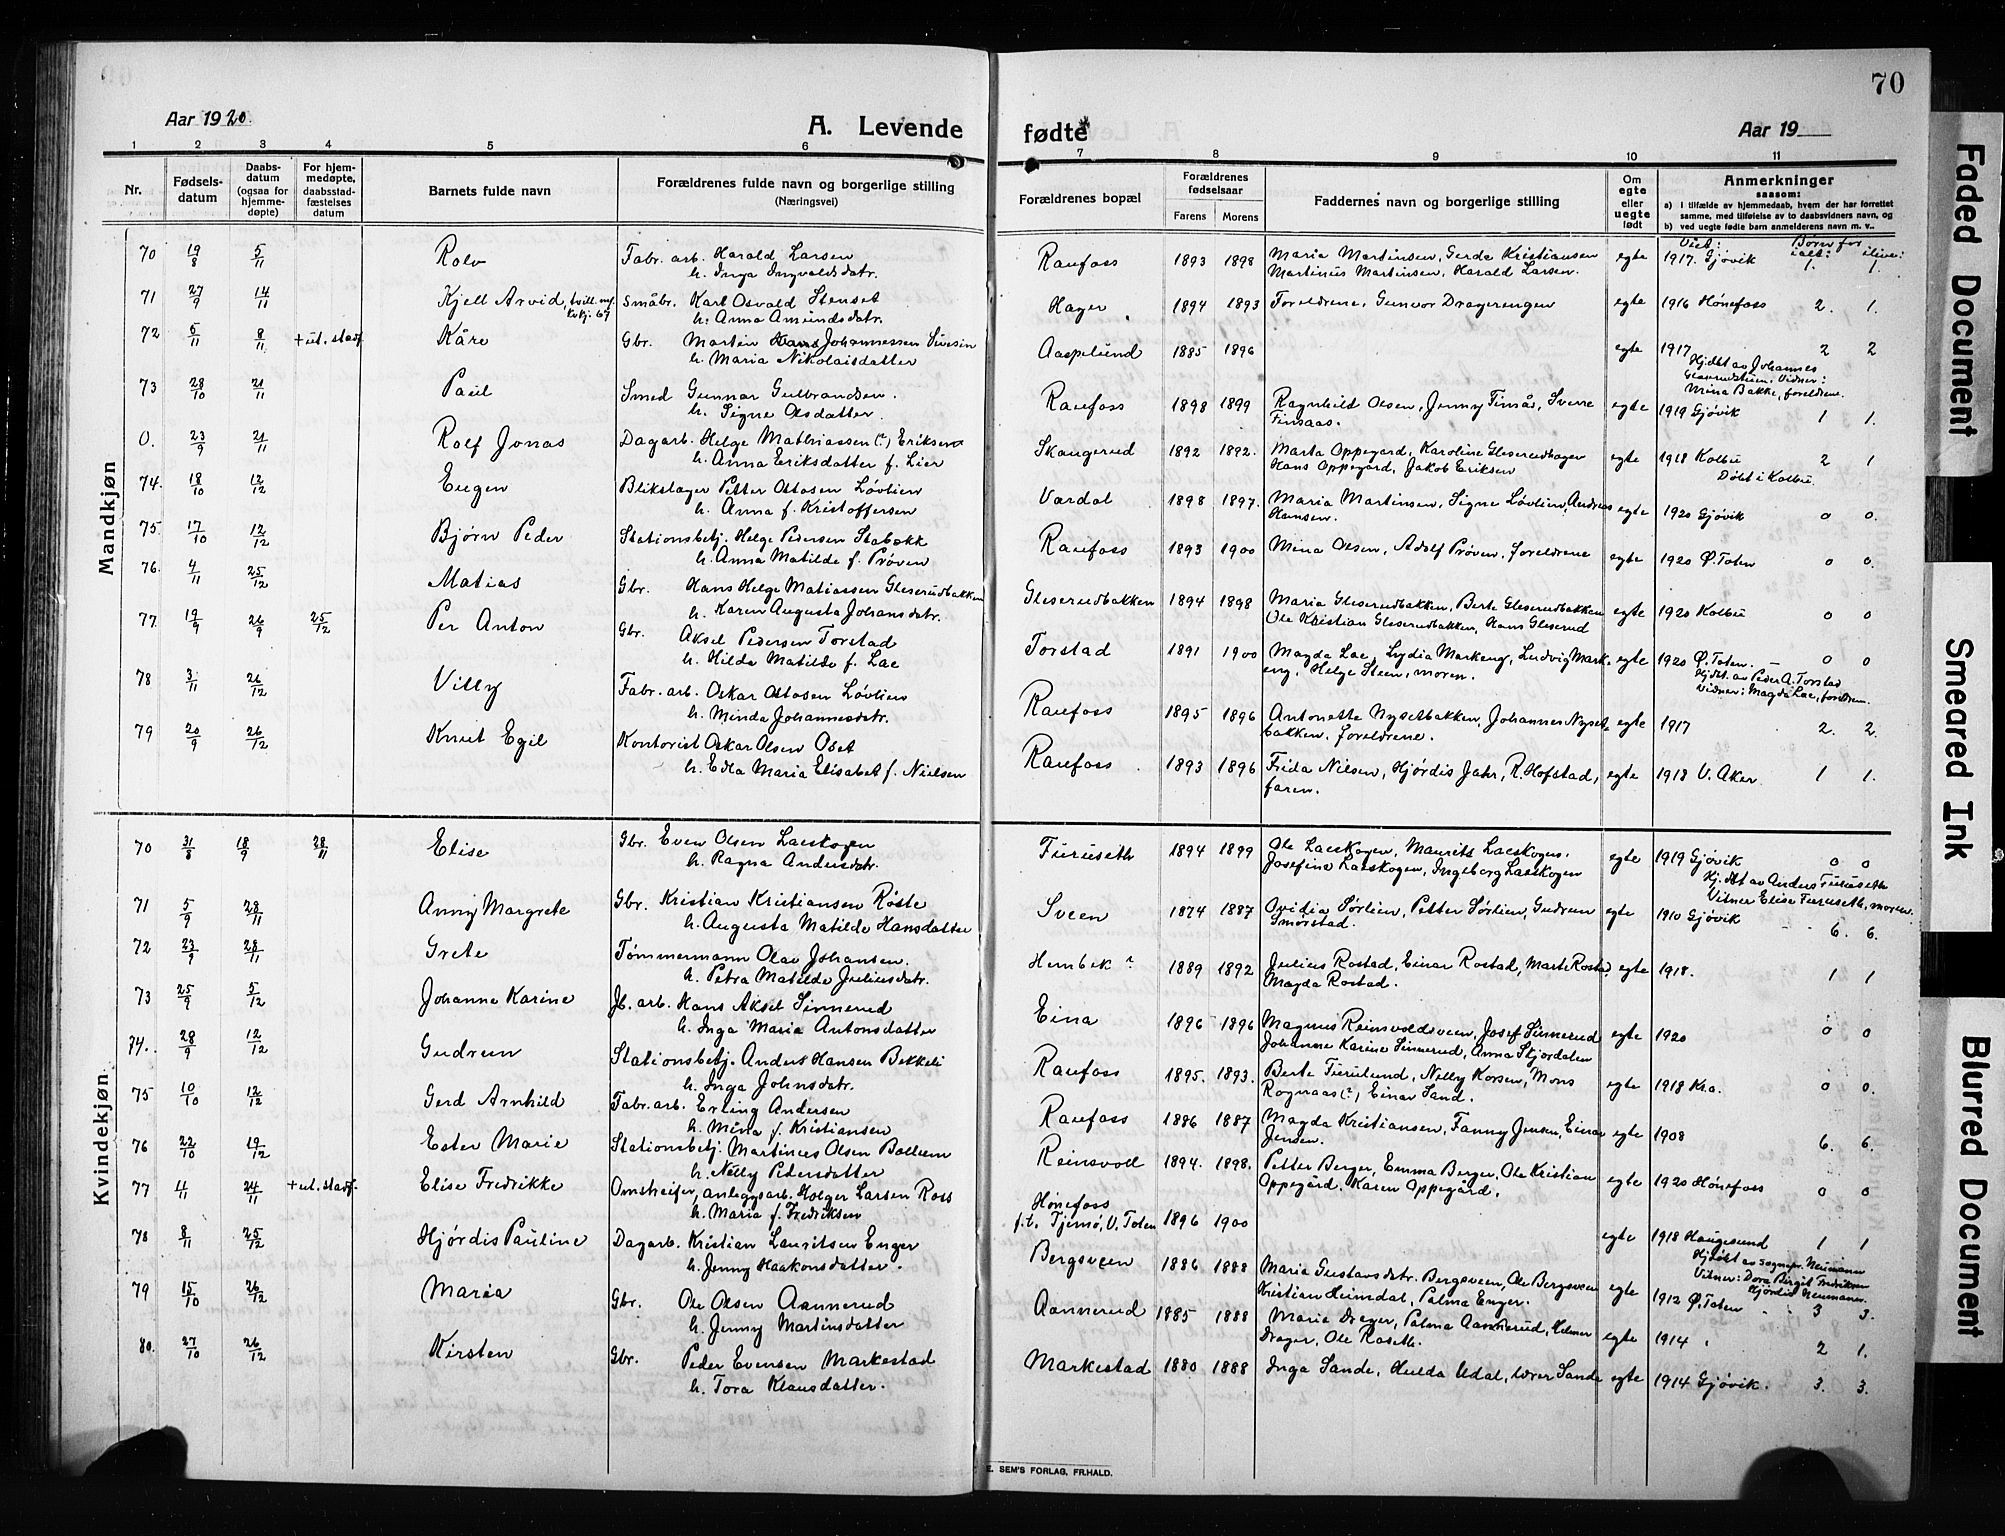 70
Aar 1920.
A. Levende
fødte
Aar 19
1 2 3 4 5 6 7 8 9 10 11
Nr.
Fødsels-
datum
Daabs-
datum
(ogsaa for
hjemme-
døpte)
For hjem-
medøpte,
daabsstad-
fæstelses
datum
Barnets fulde navn
Forældrenes fulde navn og borgerlige stilling
(Næringsvei)
Forældrenes bopæl
Forældrenes
fødselsaar
Farens Morens
Faddernes navn og borgerlige stilling
Om
egte
eller
uegte
født
Anmerkninger
saasom:
a) i tilfælde av hjemmedaab, hvem der har forrettet
samme, med tilføielse av to daabsvidners navn, og
b) ved uegte fødte barn anmelderens navn m. v..
Mandkjøn
Viet: Børn før
ialt: ilive:
70 19/8 5/11 Rolv Fabr. arb. Harald Larsen Raufoss 1893 1898 Maria Martinsen, Gerda Kristiansen egte 1917. Gjøvik 1. 1.
h. Inga Ingvoldsdatr. Martinus Martinsen, Harald Larsen.
71 27/9 14/11 Kjell Arvid, tvill. m/ Småbr. Karl Osvald Stenset Hager 1894 1893 Foreldrene, Gunvor Dragerengen egte 1916 Hønefoss 2. 1.
kvkj. 67 h. Anna Amundsdatr.
72 5/11 8/11 + ut. stadf. Kåre Gbr. Martin Hans Johannessen Aaspelund 1885 1896 egte 1917 2 2
h. Maria Nikolaisdatter Hjdbt av Johannes
Vidner:
Mina Bakke, foreldrene.
73 28/10 21/11 Paul Smed Gunnar Gulbrandsen. Raufoss 1898 1899 Ragnhild Olsen, Jenny Finsås, Sverre egte 1919 Gjøvik 1 1.
h. Signe Olsdatter. Finsaas.
0. 23/9 21/11 Rolf Jonas Dagarb. Helge Mathiassen (?) Eriksen Skaugerud 1892 1892. Marta Oppegard, Karoline Gleserudhagen egte 1918 Kolbu 2 1
h. Anna Eriksdatter f. Lier Hans Oppegård, Jakob Eriksen Døbt i Kolbu.
74. 18/10 12/12 Eugen Blikslager Petter Ottosen Løvlien Vardal 1898 1897. Maria Martinsen, Signe Løvlien, Andreas egte 1920 Gjøvik 0 0.
h. Anna f. Kristoffersen Hansen.
75. 17/10 12/12 Bjørn Peder Stationsbetj. Helge Pedersen Stabækk Raufoss 1893 1900 Mina Olsen, Adolf Prøven, foreldrene egte 1920 Ø. Toten 0 0.
h. Anna Matilde f. Prøven
76. 4/11 25/12 Matias Gbr. Hans Helge Matiassen Gleserudbakken Gleserudbakken 1894 1898 Maria Gleserudbakken, Berte Gleserudbakken egte 1920 Kolbu 0 0
h. Karen Augusta Johansdatr. Ole Kristian Gleserudbakken, Hans Gleserud
77. 19/9 26/9 25/12 Per Anton Gbr. Aksel Pedersen Torstad Torstad 1891 1900 Magda Lae, Lydia Markeng, Ludvig Mark- egte 1920 Ø. Toten. 0 0
h. Hilda Matilde f. Lae eng, Helge Steen, moren. Hjdt. av Peder A. Torstad
Vidner: Magda Lae, foreldren.
78 3/11 26/12 Villy Fabr. arb. Oskar Ottosen Løvlien Raufoss 1895 1896 Antonette Nysetbakken, Johannes Nyset- egte 1917 2. 2.
h. Minda Johannesdatr. bakken, foreldrene.
79 20/9 26/12 Knut Egil Kontorist Oskar Olsen Oset Raufoss 1893 1896 Frida Nilsen, Hjørdis Jahr, R. Hofstad, egte 1918 V. Aker 1 1.
h. Edla Maria Elisabet f. Nielsen faren.
Kvindekjøn
70 31/8 18/9 28/11 Elise Gbr. Even Olsen Laeskogen Furuseth 1894 1899 Ole Laeskogen, Maurits Laeskogen. egte 1919 Gjøvik 0 0
h. Ragna Andersdatr. Josefine Laeskogen, Ingeborg Laeskogen Hj. dbt av Anders Furuseth
Vitner Elise Furuseth, moren.
71 5/9 28/11 Anny Margrete Gbr. Kristian Kristiansen Røste Sveen 1874 1887 Ovidia Sørlien, Petter Sørlien, Gudrun egte 1910 Gjøvik 6. 6.
h. Augusta Matilde Hansdatter Smørstad.
72 23/9 28/11 Grete Tømmermann Olav Johansen. Hembek? 1889 1892 Julius Rostad, Einar Rostad, Marte Rostad egte 1918. 1 1
h. Petra Matilde Juliusdatr. Magda Rostad.
73 25/9 5/12 Johanne Karine Jb. arb. Hans Aksel Sinnerud Eina 1896 1896 Magnus Reinsvoldsveen, Josef Sinnerud egte 1920 0 0
h. Inga Maria Antonsdatter Johanne Karine Sinnerud, Anna Stjordalen
74. 28/9 12/12 Gudrun Stationsbetj. Anders Hansen Bekkeli Raufoss 1895. 1893. Berte Furulund, Nelly Korsen, Mons egte 1918 Kra. 0 0.
h. Inga Johnsdatr. Rognaas(?), Einar Sand.
75 10/10 12/12 Gerd Arnhild Fabr. arb. Erling Andersen Raufoss 1886 1887 Magda Kristiansen, Fanny Jensen, Einar egte 1908 6. 6.
h. Mina f. Kristiansen Jensen.
76 22/10 19/12 Ester Marie Stationsbetj. Martinus Olsen Bollum Reinsvoll 1894. 1898. Petter Berger, Emma Berger, Ole Kristian egte 1920 Hønefoss 0 0
h. Nelly Pedersdatter Oppegård. Karen Oppegård.
77 4/11 24/11 + ut. stadf. Elise Fredrikke Omstreifer, anleggsarb. Holger Larsen Ross Hønefoss 1896 1900 egte 1918 Haugesund 1 1
h. Maria f. Fredriksen f. t. Tjernö, V. Toten Hjdøbt av sognepr. Neumann
Vitner: Dora Birgit Fredriksen
Hjördis Neumann.
78 8/11 25/12 Hjørdis Pauline Dagarb. Kristian Lauritsen Enger Bergsveen 1886 1888 Maria Gustavsdatr. Bergsveen, Ole Bergsveen egte 1912 Ø. Toten 3 3.
h. Jenny Haakonsdatter. Kristian Heimdal, Palma Enger.
79 15/10 26/12 Maria Gbr. Ole Olsen Aannerud Aannerud 1885 1888 Maria Drager, Palma Aannerud, Hilmar egte 1914 " 2 1.
h. Jenny Martinsdatter Drager, Ole Raseth.
80. 27/10 26/12 Kirsten Gbr. Peder Evensen Markestad Markestad 1880 1888 Inga Sande, Hulda Udal, lærer Sande egte 1914 Gjøvik. 3. 3.
h. Tora Klausdatter.
E. SEM'S FORLAG, FR.HALD.
Faded Document
Smeared Ink
Blurred Document